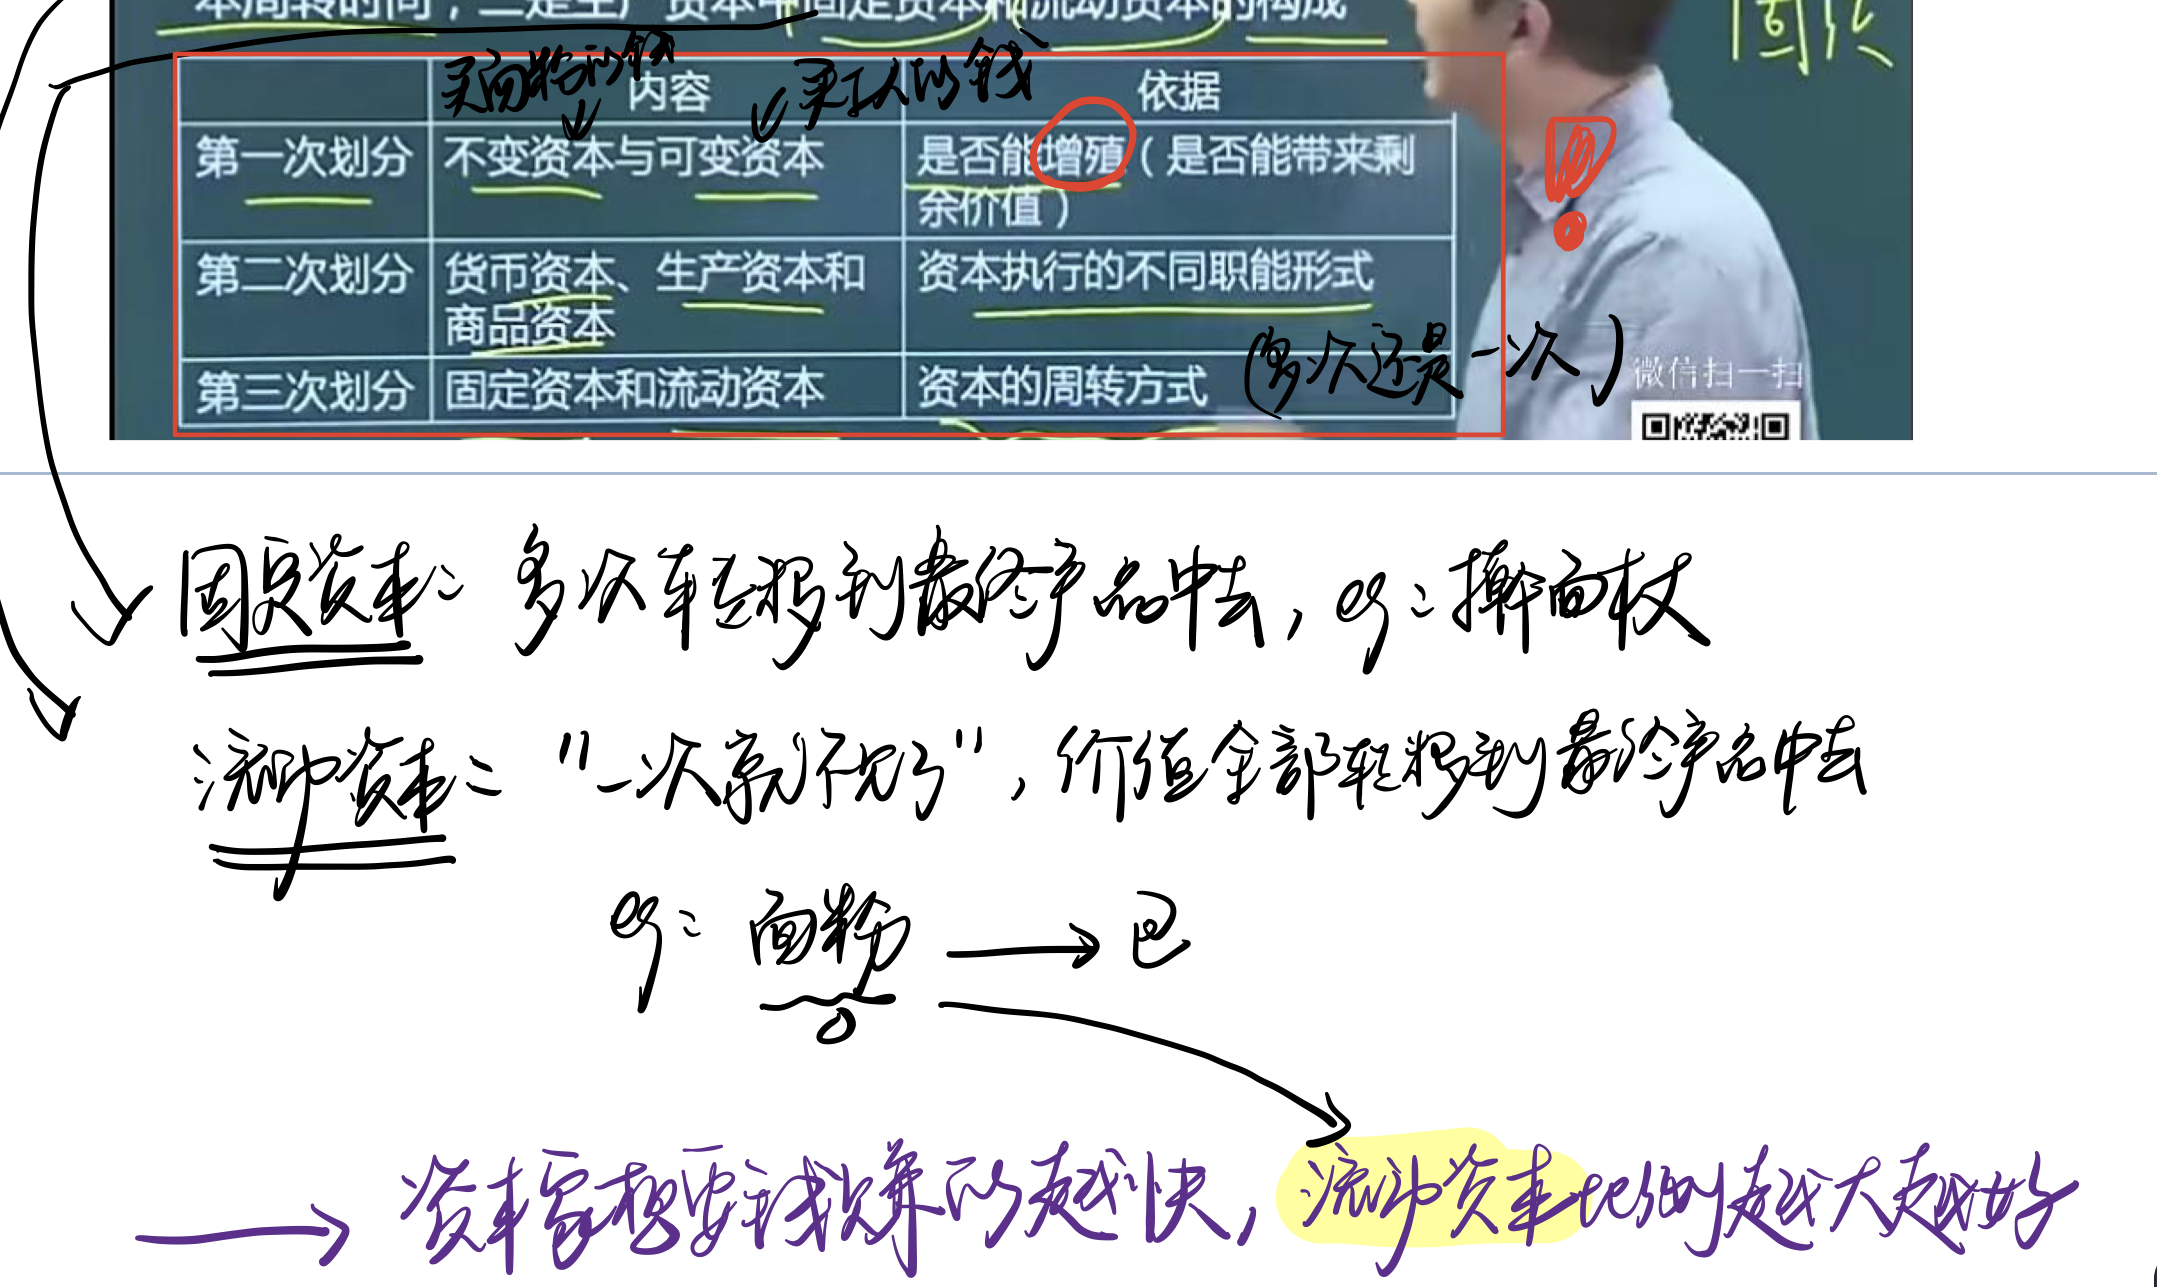 本周转时间，二是生产资本中固定资本和流动资本的构成
固
买面粉的钱
买工人的钱
内容 依据
第一次划分 不变资本与可变资本 是否能增殖（是否能带来剩
余价值）
第二次划分 货币资本、生产资本和 资本执行的不同职能形式
商品资本
(多次还是一次)
微信扫一扫
第三次划分 固定资本和流动资本 资本的周转方式
固定资本: 多次转移到最终产品中去, eg: 擀面杖
流动资本: "一次就不见了", 价值全部转移到最终产品中去
eg: 面粉 → 包
→ 资本家想要钱赚的越快, 流动资本比例越大越好